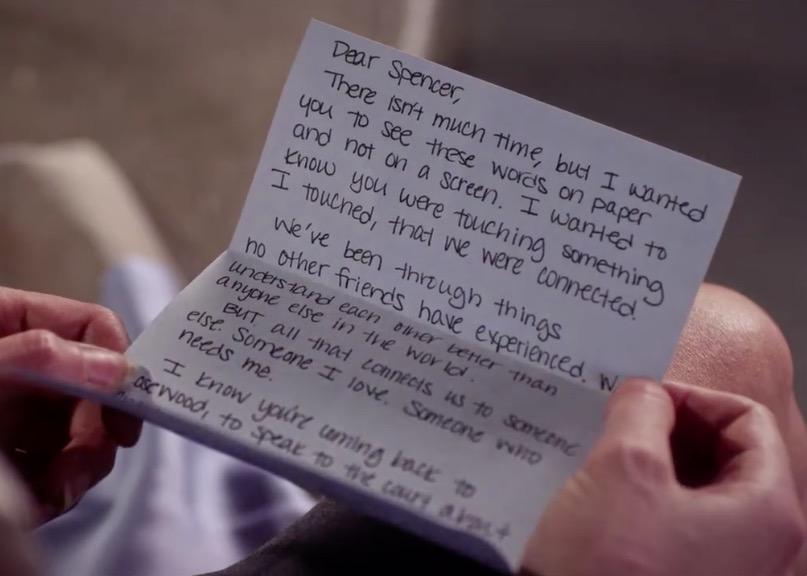 Dear Spencer,
There isn't much time, but I wanted
you to see these words on paper
and not on a screen. I wanted to
know you were touching something
I touched, that we were connected.
We've been through things
no other friends have experienced. W
understand each other better than
anyone else in the world.
But all that connects us to someone
else. Someone I love. Someone who
needs me.
I know you're coming back to
osewood, to speak to the court about